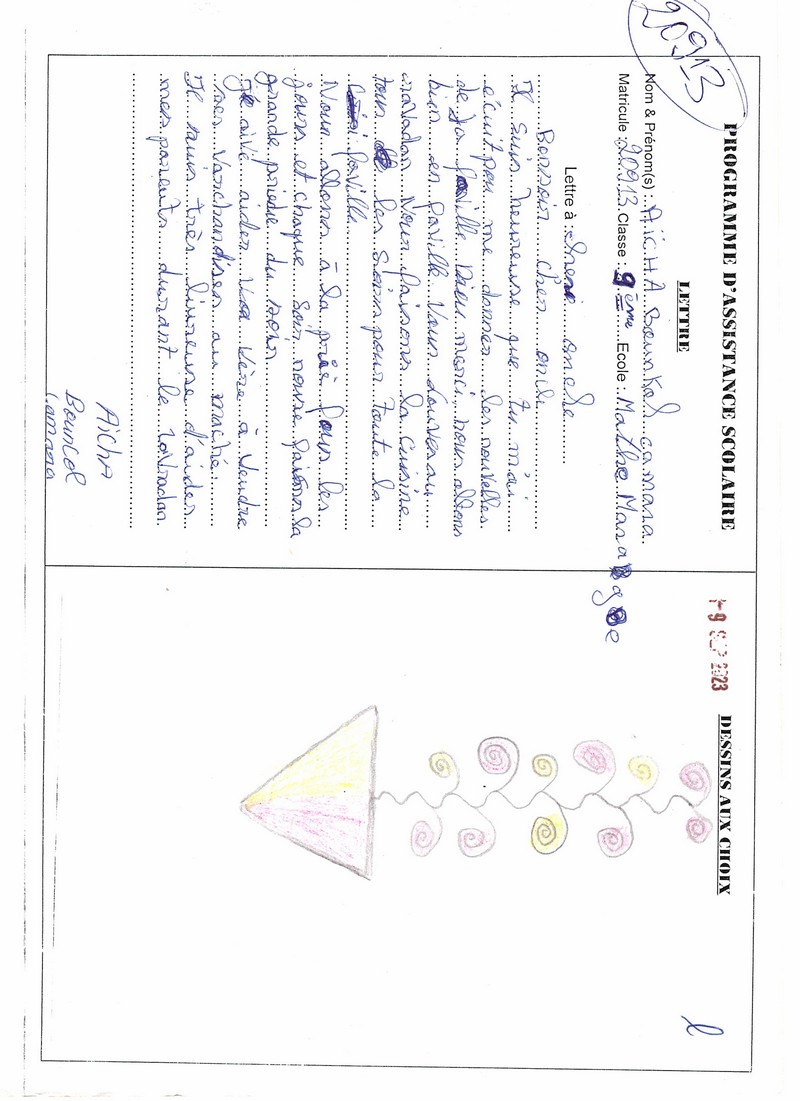 20913
PROGRAMME D'ASSISTANCE SCOLAIRE
LETTRE
Nom & Prénom(s) : AïCHA Bountol camara
Matricule : 20913 Classe : 9ème Ecole : Mathe Maragbe
Lettre à : chere oncle
Bonsoir cher oncle
Je suis heureuse que tu m'ai
écuit pou me donner les nouvelles
de ta faville Dieu merci nous allons
bien en faville Vous
ravadan Nous faisons la cuisine
tous les soirs pour toute la
faville
Nous allons à la priè pous les
jours et chaque soir nous faisons la
grande du soir
Je aive aider Ma Mère à Vendre
ses Varchandises au maché.
Je suis très heureuse d'aider
mes parents durant le ravadan.
Aicha
Camara
9 2023
DESSINS AUX CHOIX